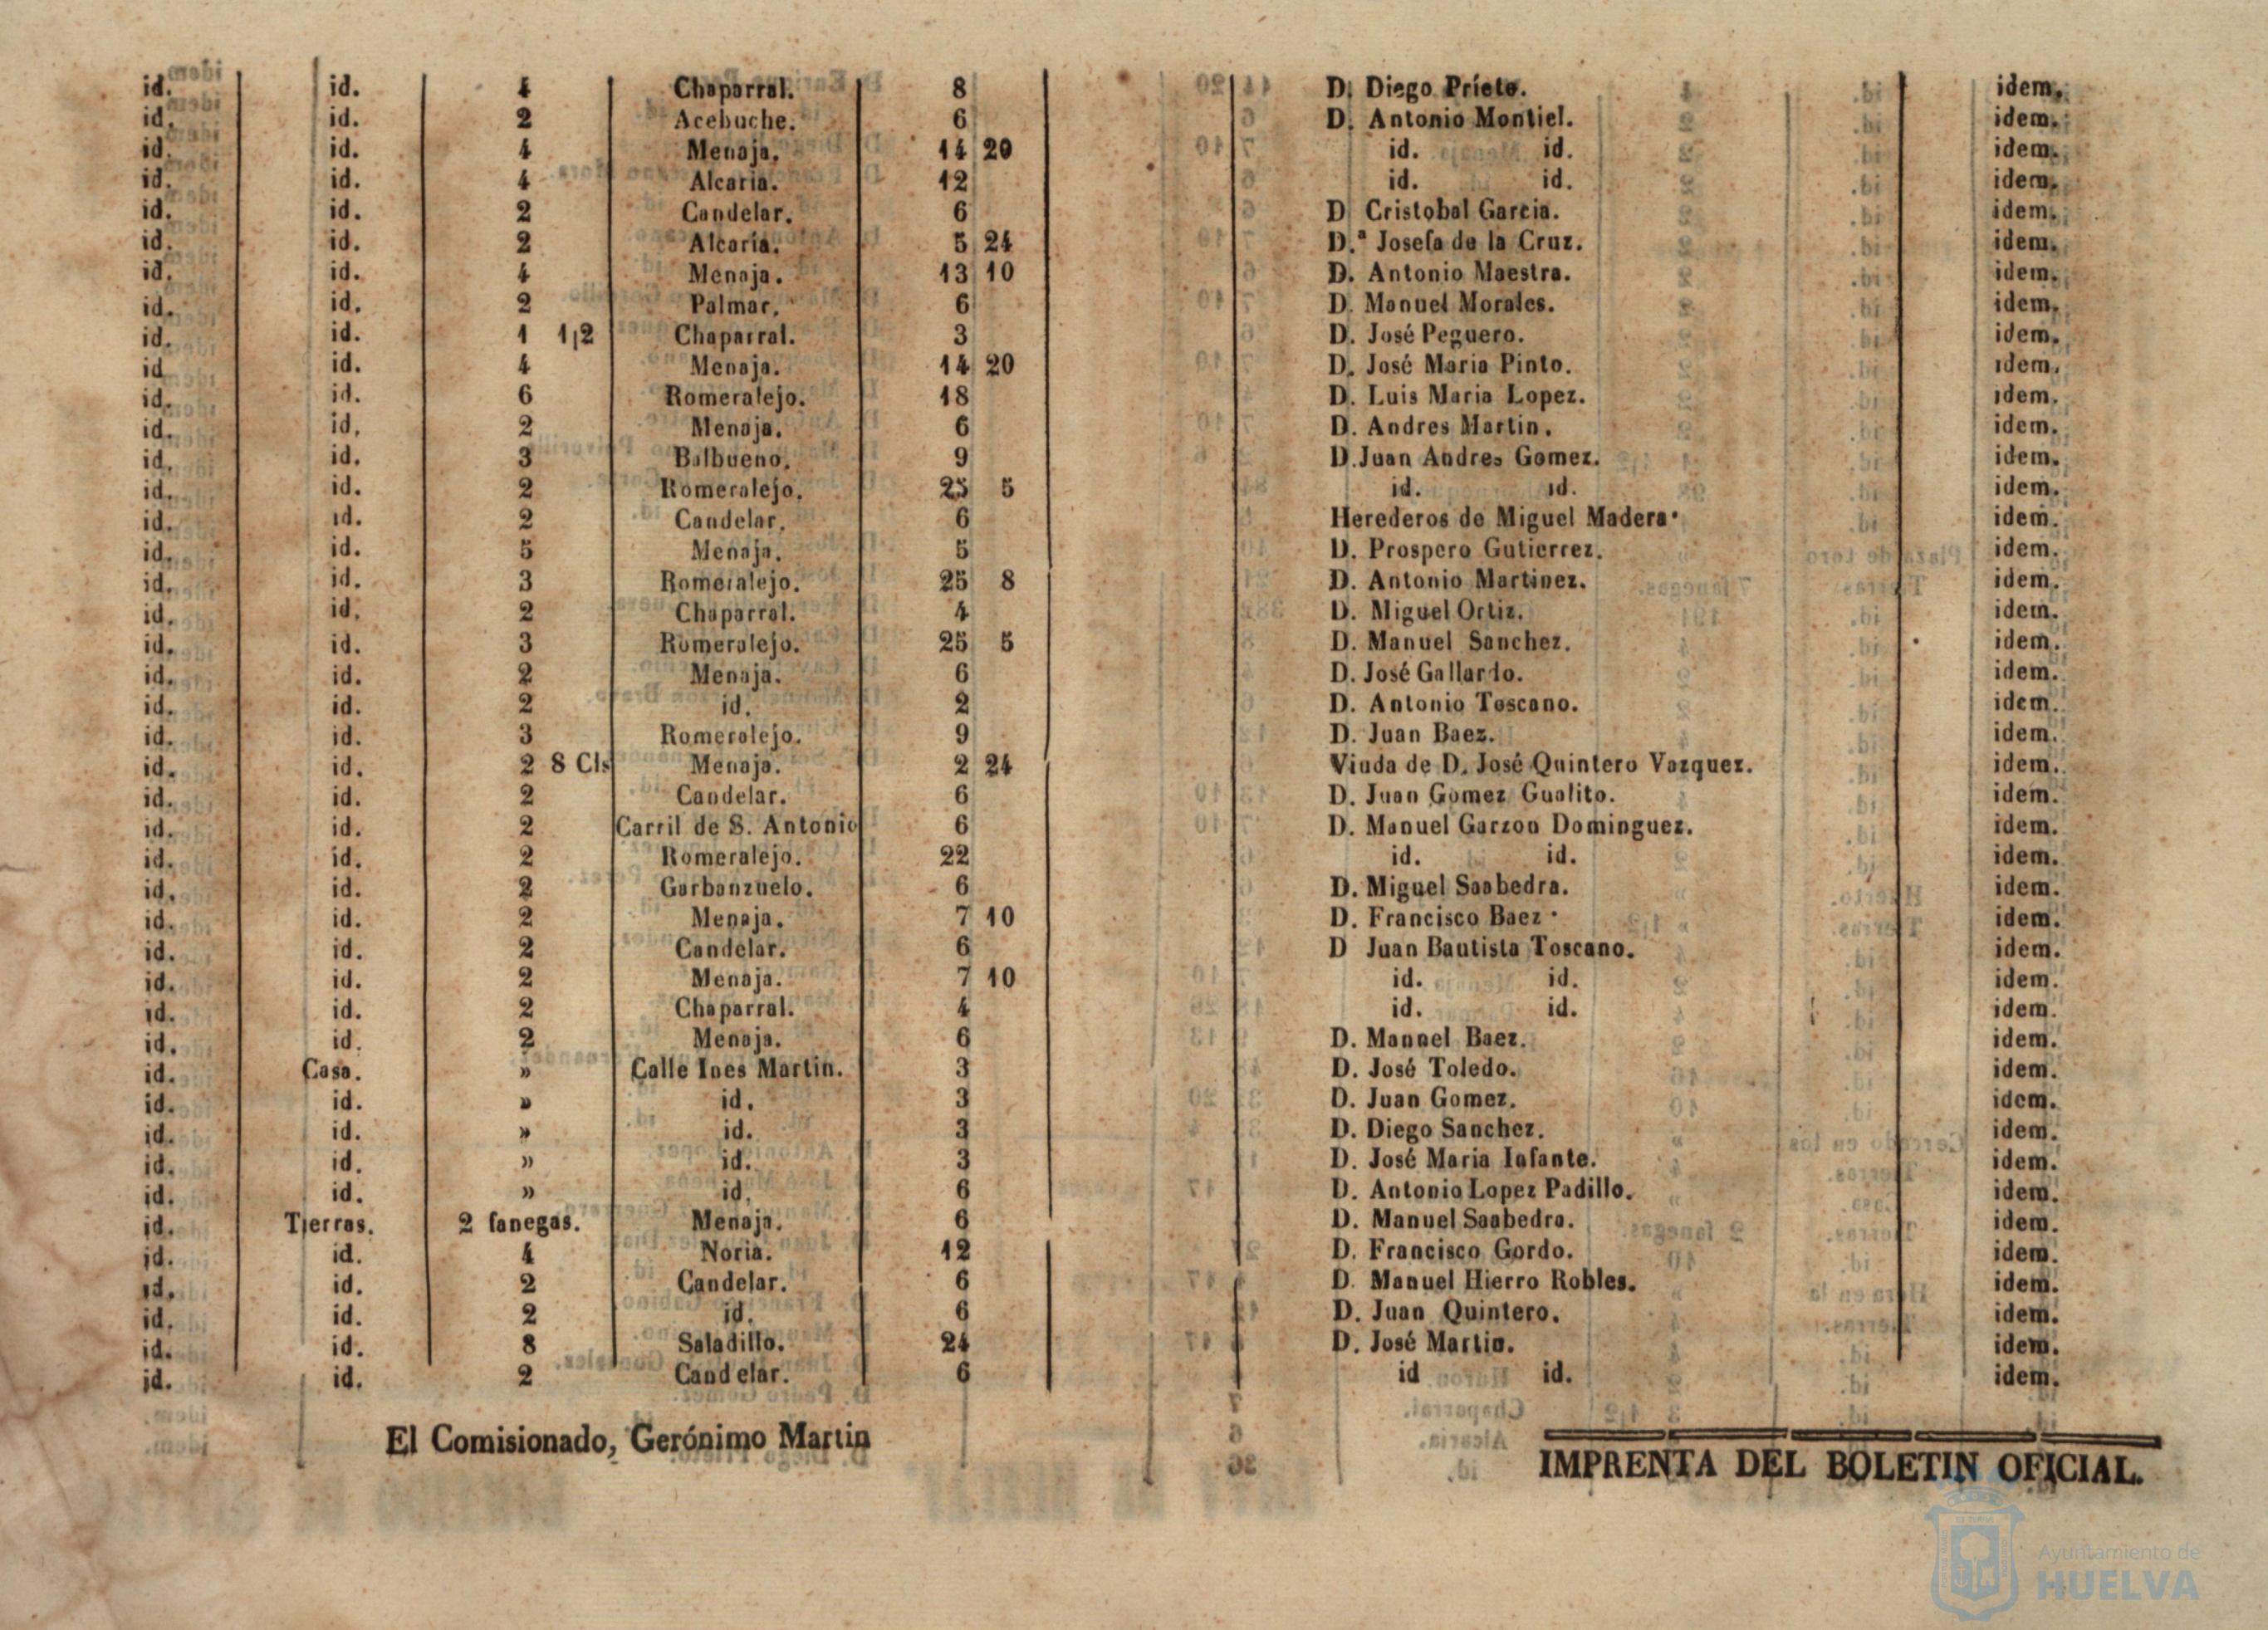 id. id. 4 Chaparral. 8 D. Diego Príeto. idem.
id. id. 2 Acebuche. 6 D. Antonio Montiel. idem.
id. id. 4 Menaja. 14 20 id. id. idem.
id. id. 4 Alcaria. 12 id. id. idem.
id. id. 2 Candelar. 6 D Cristobal Garcia. idem.
id. id. 2 Alcaría. 5 24 D.ª Josefa de la Cruz. idem.
id. id. 4 Menaja. 13 10 D. Antonio Maestra. idem.
id. id. 2 Palmar. 6 D. Manuel Morales. idem.
id. id. 1 1¡2 Chaparral. 3 D. José Peguero. idem.
id id. 4 Menaja. 14 20 D. José Maria Pinto. idem.
id. id. 6 Romeralejo. 18 D. Luis Maria Lopez. idem.
id. id. 2 Menaja. 6 D. Andres Martin. idem.
id. id. 3 Balbueno. 9 D.Juan Andres Gomez. idem.
id. id. 2 Romeralejo. 25 5 id. id. idem.
id. id. 2 Candelar. 6 Herederos de Miguel Madera. idem.
id. id. 5 Menaja. 5 D. Prospero Gutierrez. idem.
id. id. 3 Romeralejo. 25 8 D. Antonio Martinez. idem.
id. id. 2 Chaparral. 4 D. Miguel Ortiz. idem.
id. id. 3 Romeralejo. 25 5 D. Manuel Sanchez. idem.
id. id. 2 Menaja. 6 D. José Gallardo. idem.
id. id. 2 id. 2 D. Antonio Toscano. idem.
id. id. 3 Romeralejo. 9 D. Juan Baez. idem.
id. id. 2 8 Cls Menaja. 2 24 Viuda de D. José Quintero Vazquez. idem.
id. id. 2 Candelar. 6 D. Juan Gomez Gualito. idem.
id. id. 2 Carril de S. Antonio 6 D. Manuel Garzon Dominguez. idem.
id. id. 2 Romeralejo. 22 id. id. idem.
id. id. 2 Garbanzuelo. 6 D. Miguel Saabedra. idem.
id. id. 2 Menaja. 7 10 D. Francisco Baez. idem.
id. id. 2 Candelar. 6 D Juan Bautista Toscano. idem.
id. id. 2 Menaja. 7 10 id. id. idem.
id. id. 2 Chaparral. 4 id. id. idem.
id. id. 2 Menaja. 6 D. Mannel Baez. idem.
id. Casa. » Calle Ines Martin. 3 D. José Toledo. idem.
id. id. » id. 3 D. Juan Gomez. idem.
id. id. » id. 3 D. Diego Sanchez. idem.
id. id. » id. 3 D. José Maria Infante. idem.
id. id. » id. 6 D. Antonio Lopez Padillo. idem.
id. Tierras. 2 fanegas. Menaja. 6 D. Manuel Saabedra. idem.
id. id. 4 Noria. 12 D. Francisco Gordo. idem.
id. id. 2 Candelar. 6 D. Manuel Hierro Robles. idem.
id. id. 2 id. 6 D. Juan Quintero. idem.
id. id. 8 Saladillo. 24 D. José Martin. idem.
id. id. 2 Candelar. 6 id id. idem.
El Comisionado, Gerónimo Martin
IMPRENTA DEL BOLETIN OFICIAL.
Ayuntamiento de
HUELVA